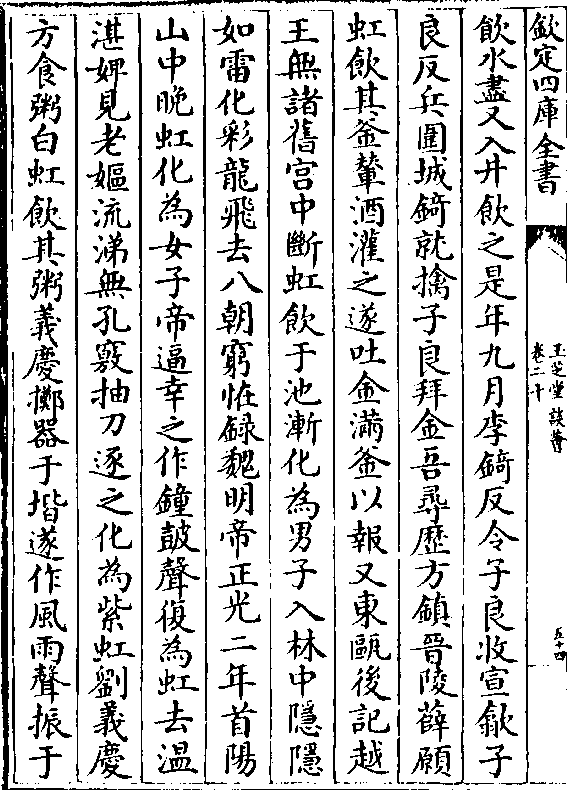 欽定四庫全書
玉芝堂談薈
卷二十
五十四
飲水盡又入井飲之是年九月李錡反令子良收宣歙子
良反兵圍城錡就擒子良拜金吾尋歷方鎮晉陵薛願
虹飲其釜輦酒灌之遂吐金滿釜以報又東甌後記越
王無諸舊宫中斷虹飲于池漸化為男子入林中隱隱
如雷化彩龍飛去八朝窮怪録魏明帝正光二年首陽
山中晚虹化為女子帝逼幸之作鐘鼓聲復為虹去温
湛婢見老嫗流涕無孔竅抽刀逐之化為紫虹劉義慶
方食粥白虹飲其粥義慶擲器于堦遂作風雨聲振于